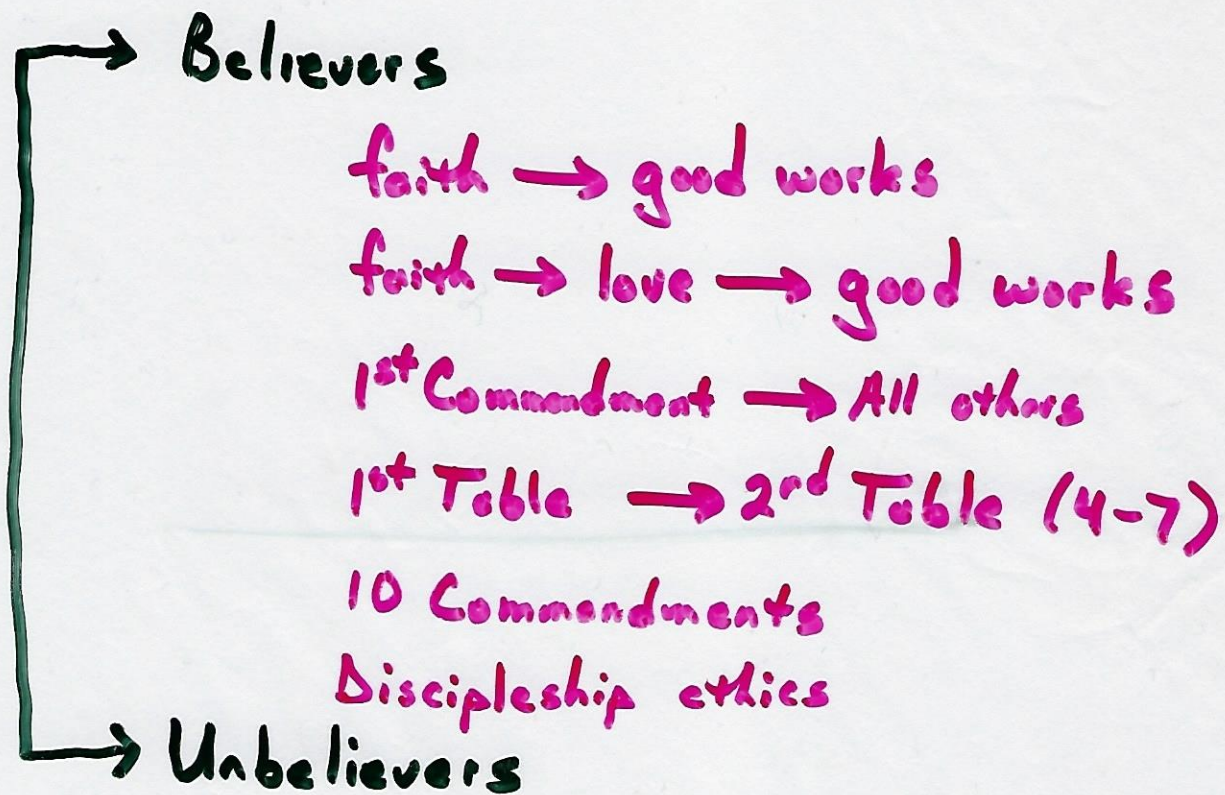 → Believers
faith → good works
faith → love → good works
1st Commandment → All others
1st Table → 2nd Table (4-7)
10 Commandments
Discipleship ethics
→ Unbelievers